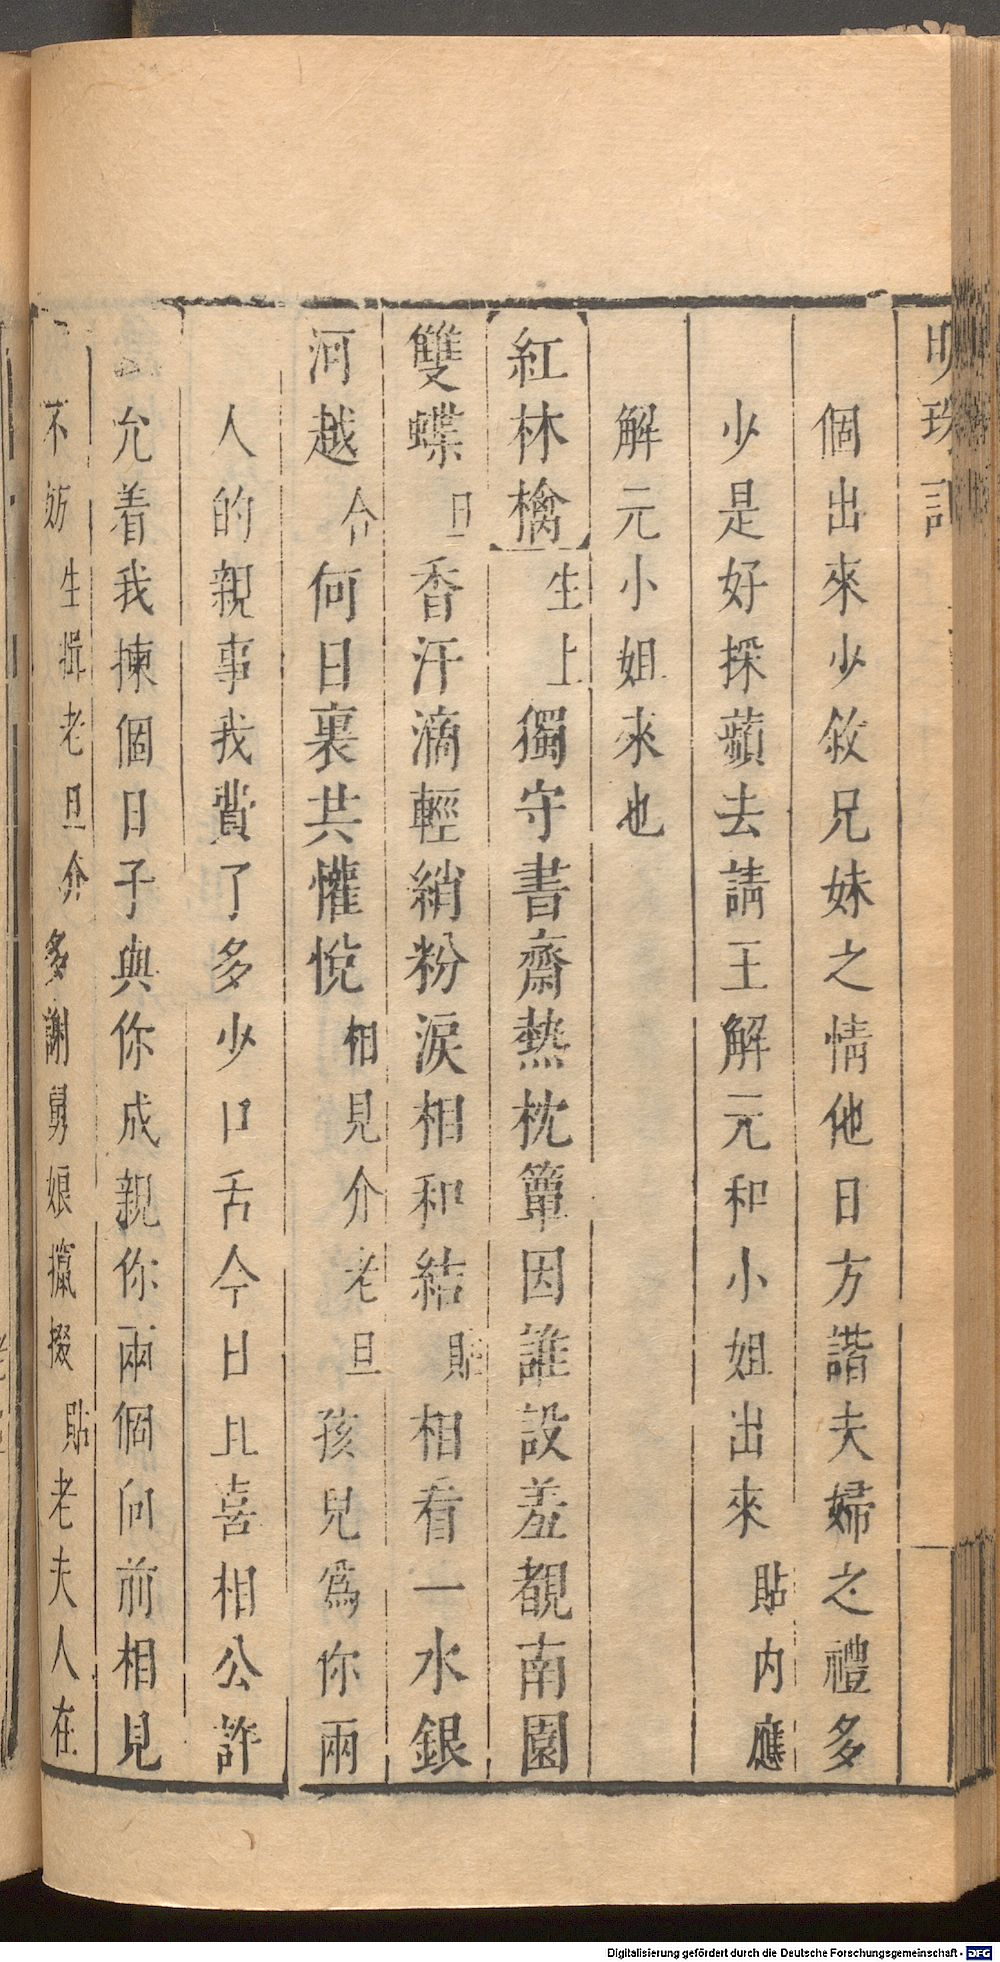 明珠記
個出來少敘兄妹之情他日方諧夫婦之禮多
少是好採蘋去請王解元和小姐出來貼内應
解元小姐來也
紅林檎生上獨守書齋熱枕簟因誰設羞覩南園
雙蝶旦香汗滴輕綃粉淚相和結貼相看一水銀
河越何日裏共懽悅相見介老旦孩兒爲你兩
人的親事我費了多少口舌今日且喜相公許
允着我揀個日子與你成親你兩個向前相見
不妨生揖老旦介多謝舅娘攛掇貼老夫人在
Digitalisierung gefördert durch die Deutsche Forschungsgemeinschaft - DFG